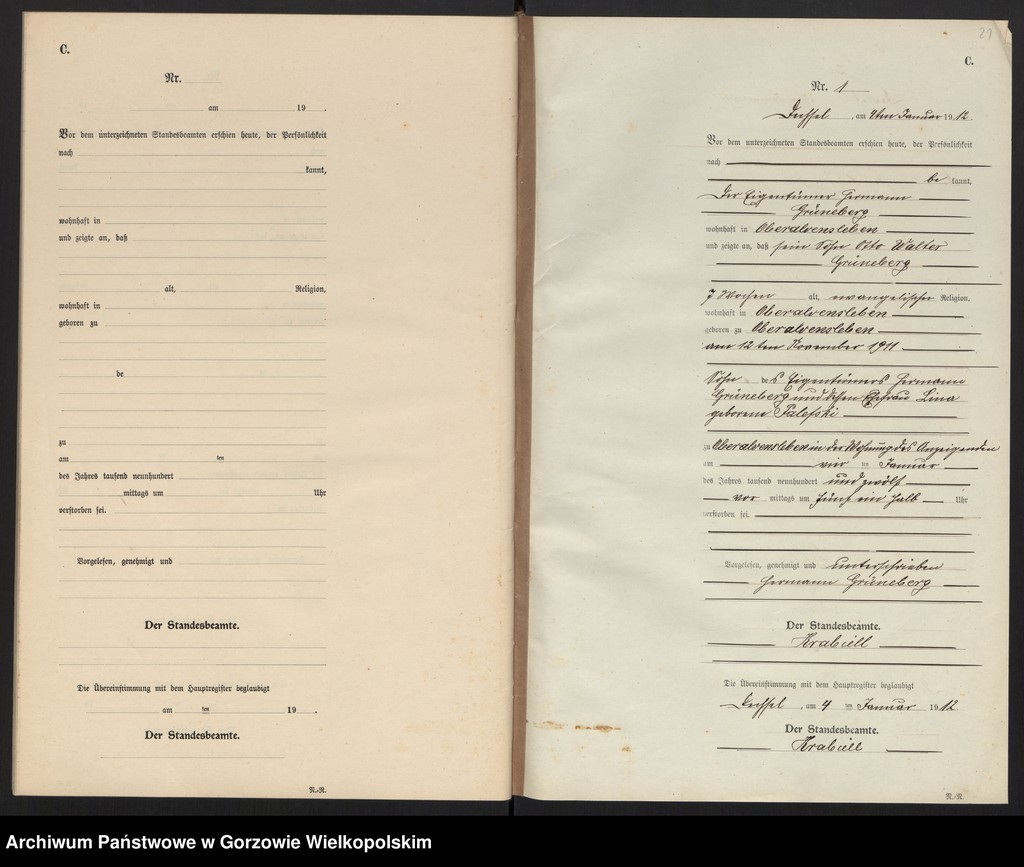 C.
Nr.
am 19 .
Vor dem unterzeichneten Standesbeamten erschien heute, der Persönlichkeit
nach
kannt,
wohnhaft in
und zeigte an, daß
alt, Religion,
wohnhaft in
geboren zu
de
zu
am ten
des Jahres tausend neunhundert
mittags um Uhr
verstorben sei.
Vorgelesen, genehmigt und
Der Standesbeamte.
Die Übereinstimmung mit dem Hauptregister beglaubigt
am ten 19 .
Der Standesbeamte.
N.-N.
21
C.
Nr. 1
am 4ten Januar 1912.
Vor dem unterzeichneten Standesbeamten erschien heute, der Persönlichkeit
nach
be kannt,
Der Eigentümer Hermann
Grüneberg
wohnhaft in Oberalvensleben
und zeigte an, daß sein Sohn Otto Walter
Grüneberg
7 Wochen alt, evangelischer Religion,
wohnhaft in Oberalvensleben
geboren zu Oberalvensleben
am 12ten November 1911
Sohn des Eigentümers Hermann
Grüneberg und dessen Ehefrau Lina
geborene Palefski
zu Oberalvensleben in der Wohnung des Anzeigenden
am vier ten Januar
des Jahres tausend neunhundert und zwölf
vor mittags um fünf ein halb Uhr
verstorben sei.
Vorgelesen, genehmigt und unterschrieben
Hermann Grüneberg
Der Standesbeamte.
Krabiell
Die Übereinstimmung mit dem Hauptregister beglaubigt
am 4 ten Januar 1912
Der Standesbeamte.
Krabiell
N.-N.
Archiwum Państwowe w Gorzowie Wielkopolskim